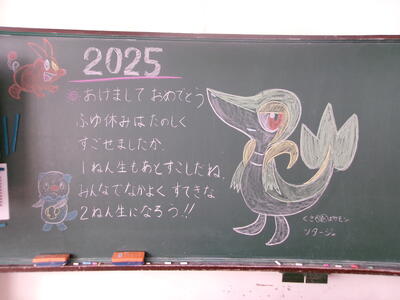 2025
あけまして おめでとう
ふゆ休みは たのしく
すごせましたか。
1ねん生もあとすこしだね。
みんなでなかよく すてきな
2ねん生になろう!!
くさ ポケモン
ツタージャ